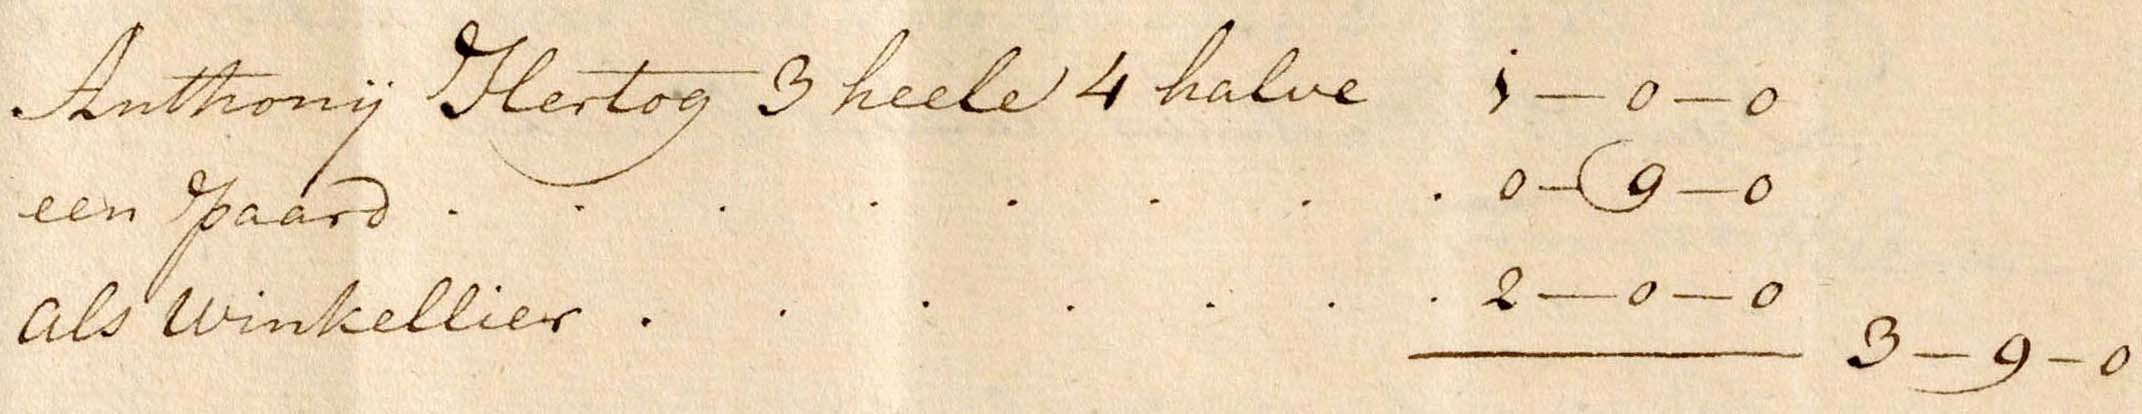 Anthonij Hertog 3 heele 4 halve 1 — 0 — 0
een paard . . . . . . . . 0 — 9 — 0
als winkellier . . . . . . . 2 — 0 — 0
3 — 9 — 0